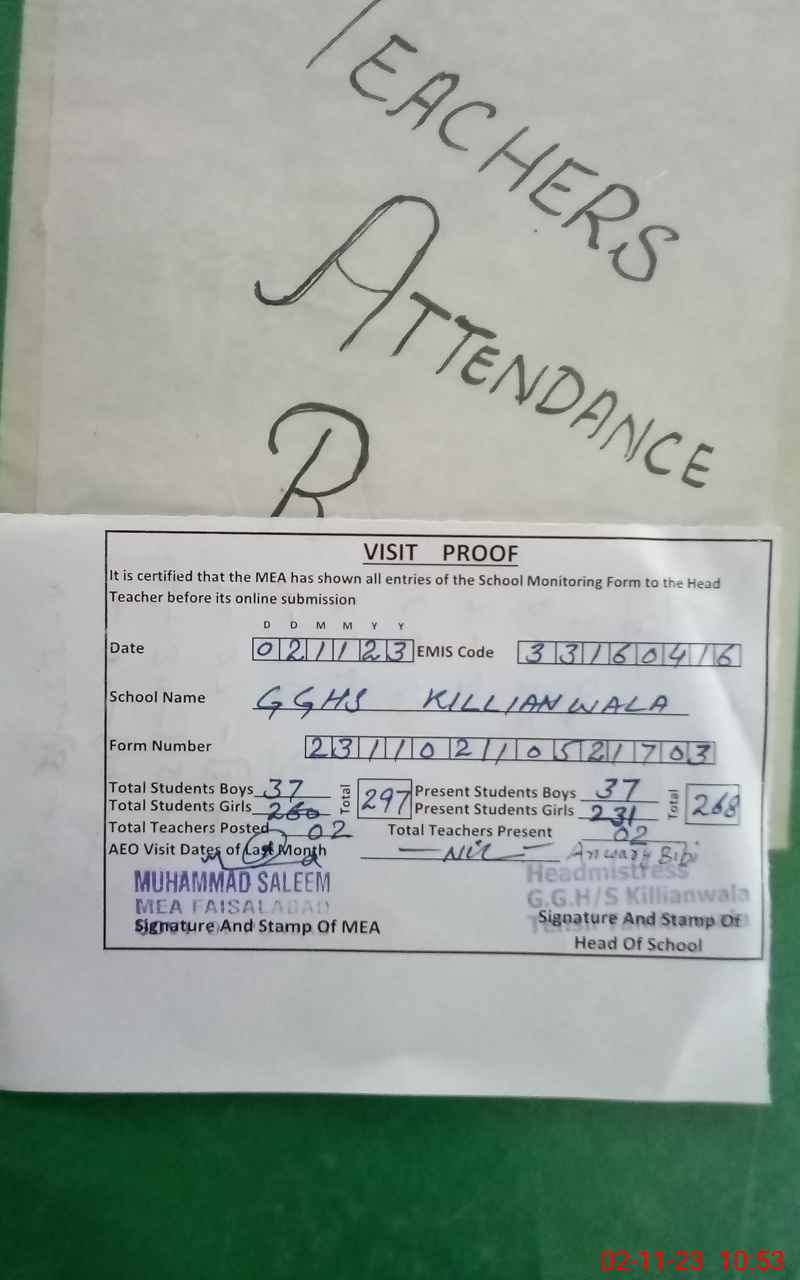 TEACHERS
ATTENDANCE
R
VISIT PROOF
It is certified that the MEA has shown all entries of the School Monitoring Form to the Head
Teacher before its online submission
D D M M Y Y
Date 021123 EMIS Code 33160416
School Name GGHS KILLIANWALA
Form Number 231102110521703
Total Students Boys 37 Total 297 Present Students Boys 37 Total 268
Total Students Girls 260 Present Students Girls 231
Total Teachers Posted 02 Total Teachers Present 02
AEO Visit Dates of Last Month — Nil — Anwary Bibi
MUHAMMAD SALEEM Headmistress
MEA FAISALABAD G.G.H/S Killianwala
Signature And Stamp Of MEA Signature And Stamp Of
Head Of School
02-11-23 10:53